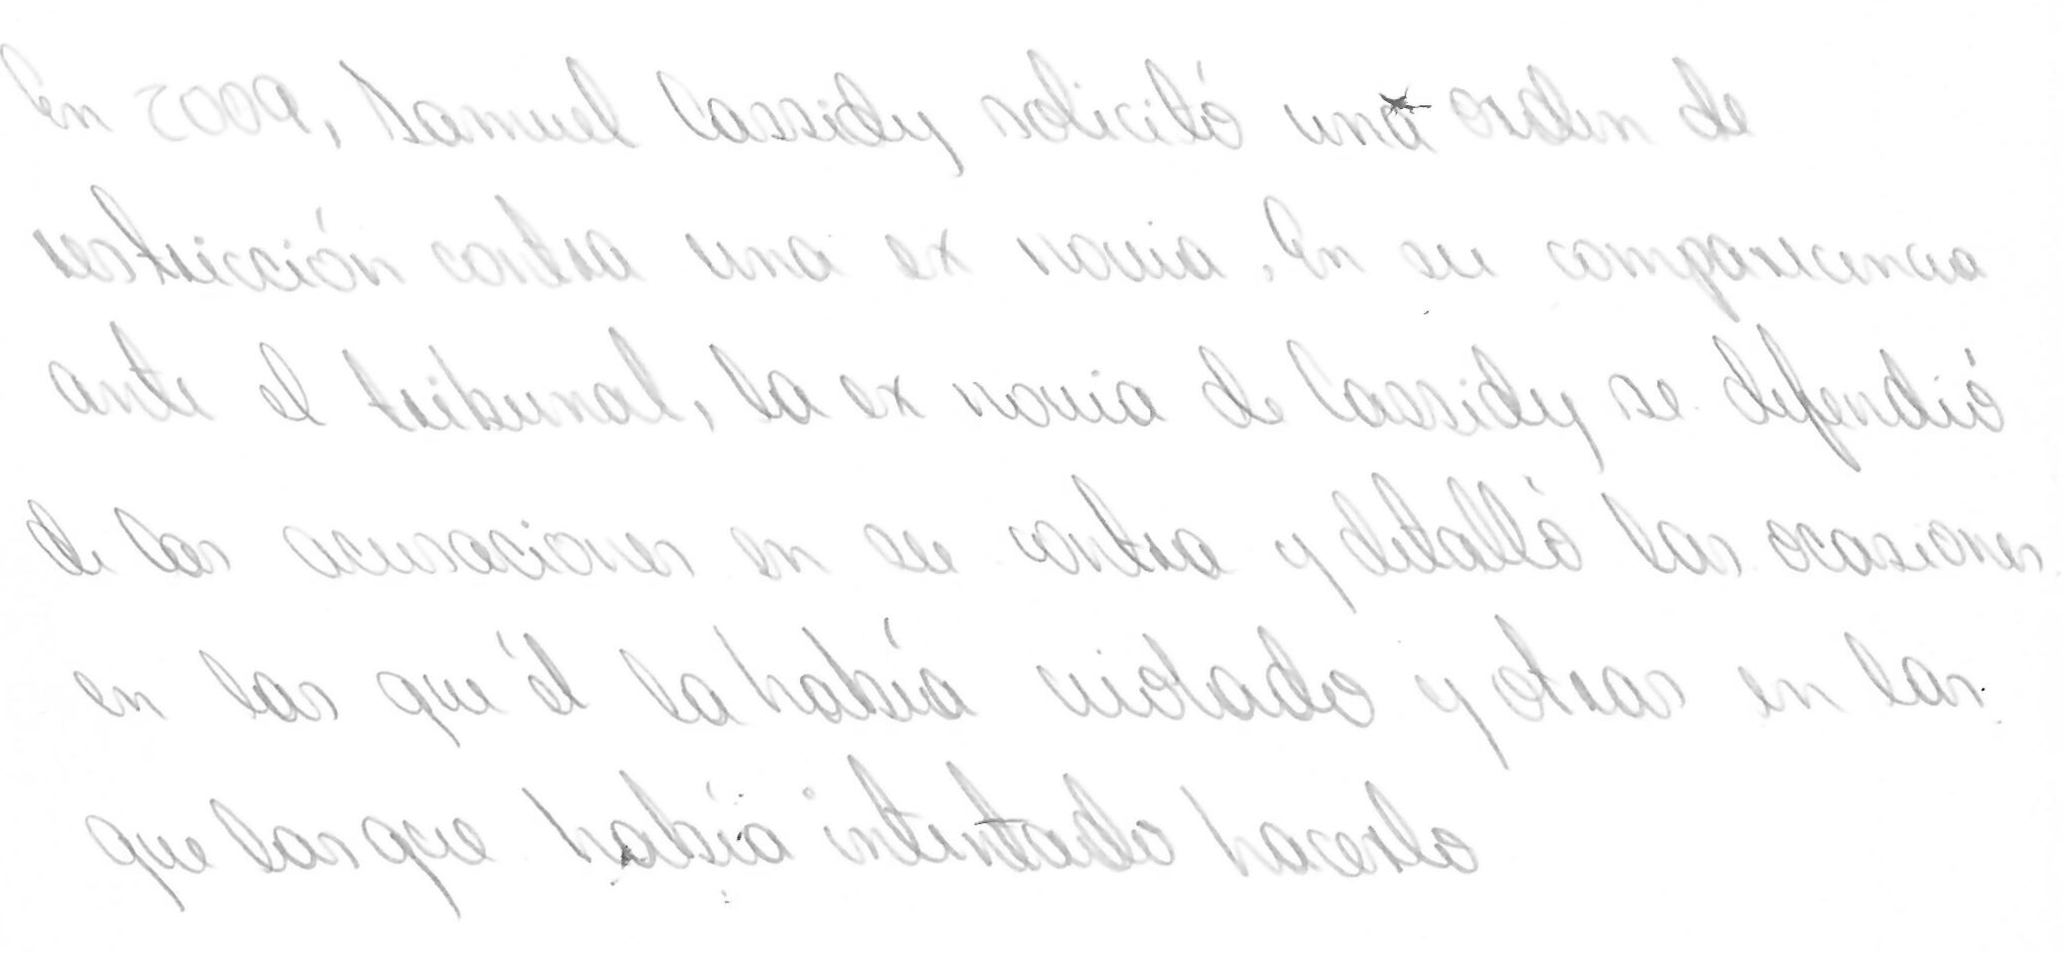 En 2009, Samuel Cassidy solicitó una orden de
restricción contra una ex novia. En su comparecencia
ante el tribunal, la ex novia de Cassidy se defendió
de las acusaciones en su contra y detalló las ocasiones
en las que él la había violado y otras en las
que las que había intentado hacerlo